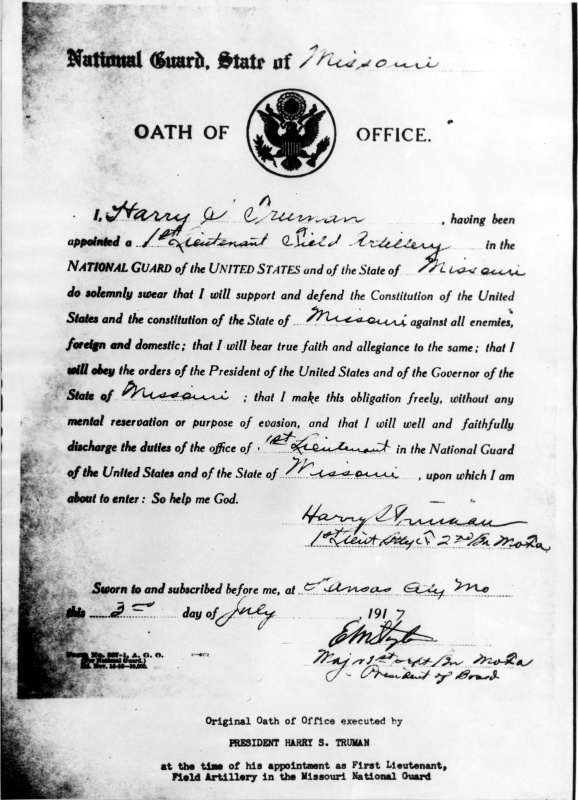 National Guard, State of Missouri
OATH OF OFFICE.
I, Harry S Truman, having been
appointed a 1st Lieutenant Field Artillery in the
NATIONAL GUARD of the UNITED STATES and of the State of Missouri
do solemnly swear that I will support and defend the Constitution of the United
States and the constitution of the State of Missouri against all enemies,
foreign and domestic; that I will bear true faith and allegiance to the same; that I
will obey the orders of the President of the United States and of the Governor of the
State of Missouri; that I make this obligation freely, without any
mental reservation or purpose of evasion, and that I will well and faithfully
discharge the duties of the office of 1st Lieutenant in the National Guard
of the United States and of the State of Missouri, upon which I am
about to enter: So help me God.
Harry S Truman
1st Lieut F 2nd Bn Mo Fa
Sworn to and subscribed before me, at Kansas City Mo
this 3rd day of July 1917
Maj 1st Bn Mo Fa
President of Board
Form No. 337-1, A. G. O.
(For National Guard.)
Ed. Nov.
Original Oath of Office executed by
PRESIDENT HARRY S. TRUMAN
at the time of his appointment as First Lieutenant,
Field Artillery in the Missouri National Guard